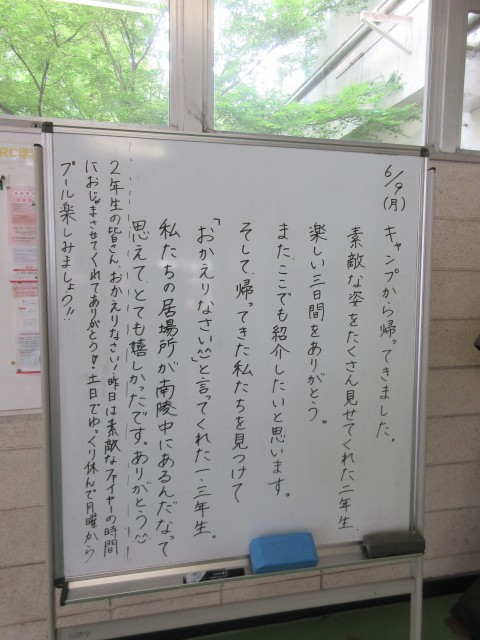 6/9(月) キャンプから帰ってきました。
素敵な姿をたくさん見せてくれた二年生、
楽しい三日間をありがとう。
また、ここでも紹介したいと思います。
そして、帰ってきた私たちを見つけて
「おかえりなさい^^」と言ってくれた一・三年生。
私たちの居場所が南陵中にあるんだなって
思えて、とても嬉しかったです。ありがとう
2年生の皆さん、おかえりなさい!昨日は素敵なファイヤーの時間
におじゃまさせてくれてありがとう!土日でゆっくり休んで月曜から
プール楽しみましょう!!